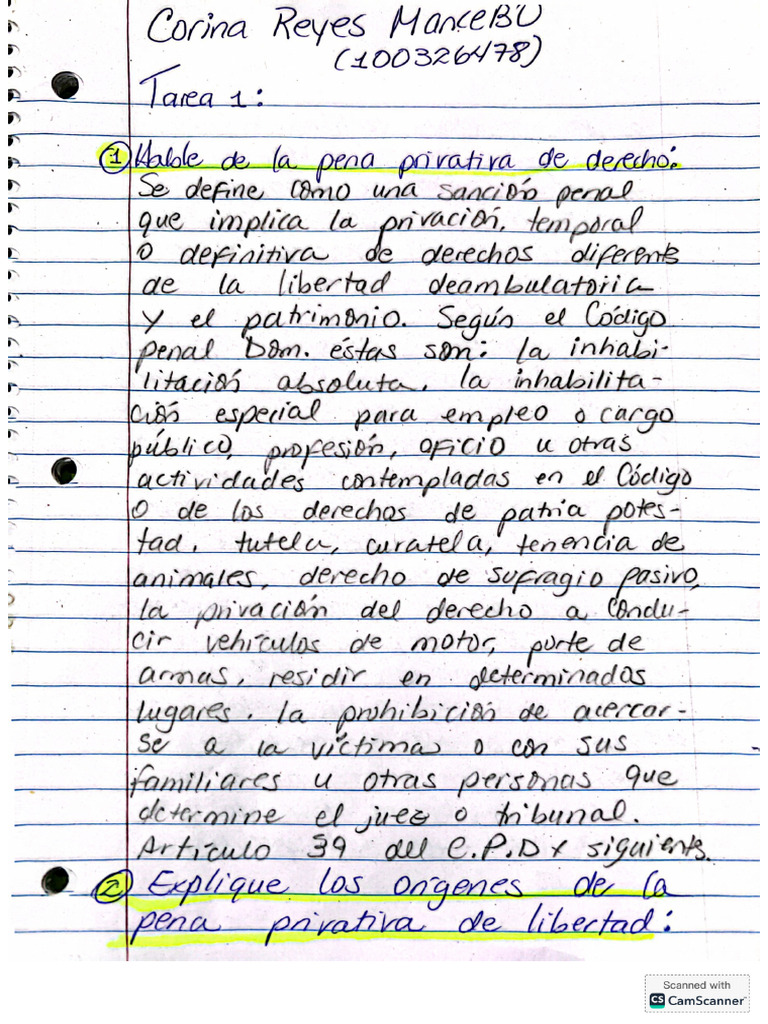 Corina Reyes Mancebo
(100326478)
Tarea 1:
① Hable de la pena privativa de derecho:
Se define como una sanción penal
que implica la privación, temporal
o definitiva de derechos diferents
de la libertad deambulatoria
y el patrimonio. Según el Código
penal Dom. éstas son: la inhabi-
litación absoluta, la inhabilita-
ción especial para empleo o cargo
público, profesión, oficio u otras
actividades contempladas en el Código
o de los derechos de patria potes-
tad, tutela, curatela, tenencia de
animales, derecho de sufragio pasivo,
la privación del derecho a condu-
cir vehículos de motor, porte de
armas, residir en determinados
lugares. la prohibición de acercar-
se a la víctima o con sus
familiares u otras personas que
determine el juez o tribunal.
Artículo 39 del C.P.D y siguients.
② Explique los orígenes de la
pena privativa de libertad:
Scanned with
CS CamScanner